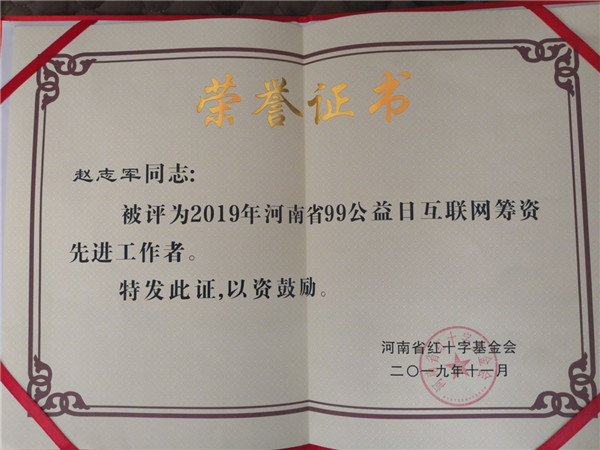 荣誉证书
赵志军同志:
被评为2019年河南省99公益日互联网筹资
先进工作者。
特发此证,以资鼓励。
河南省红十字基金会
二〇一九年十一月